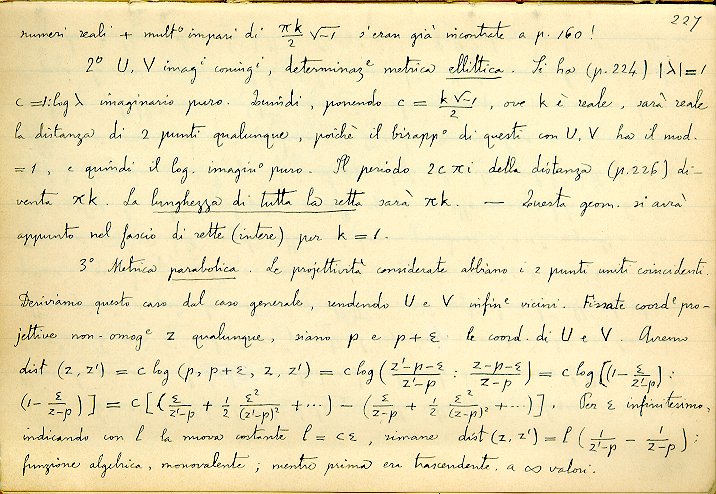 227
numeri reali + mult° impari di πk/2 √-1 s'eran già incontrate a p. 160!
2° U, V imagⁱ coniugⁱ, determinazᵉ metrica ellittica. Si ha (p. 224) |λ|=1
e =1: log λ imaginario puro. Quindi, ponendo c = k√-1/2, ove k è reale, sarà reale
la distanza di 2 punti qualunque, poichè il birapp° di questi con U, V ha il mod.
=1, e quindi il log. imagin° puro. Il periodo 2cπi della distanza (p. 226) di-
venta πk. La lunghezza di tutta la retta sarà πk. — Questa geom. si avrà
appunto nel fascio di rette (intere) per k = 1.
3° Metrica parabolica. Le projettività considerate abbiano i 2 punti uniti coincidenti.
Deriviamo questo caso dal caso generale, rendendo U e V infinᵉ vicini. Fissate coordᵉ pro-
jettive non-omogᵉ z qualunque, siano p e p+ε le coord. di U e V. Avremo
dist (z, z') = c log (p, p+ε, z, z') = c log ( (z'-p-ε)/(z'-p) : (z-p-ε)/(z-p) ) = c log [(1 - ε/(z'-p)) :
(1 - ε/(z-p))] = c [(ε/(z'-p) + 1/2 ε²/(z'-p)² + ...) - (ε/(z-p) + 1/2 ε²/(z-p)² + ...)]. Per ε infinitesimo,
indicando con l la nuova costante l = cε, rimane dist (z, z') = l (1/(z'-p) - 1/(z-p)):
funzione algebrica, monovalente; mentre prima era trascendente a ∞ valori.